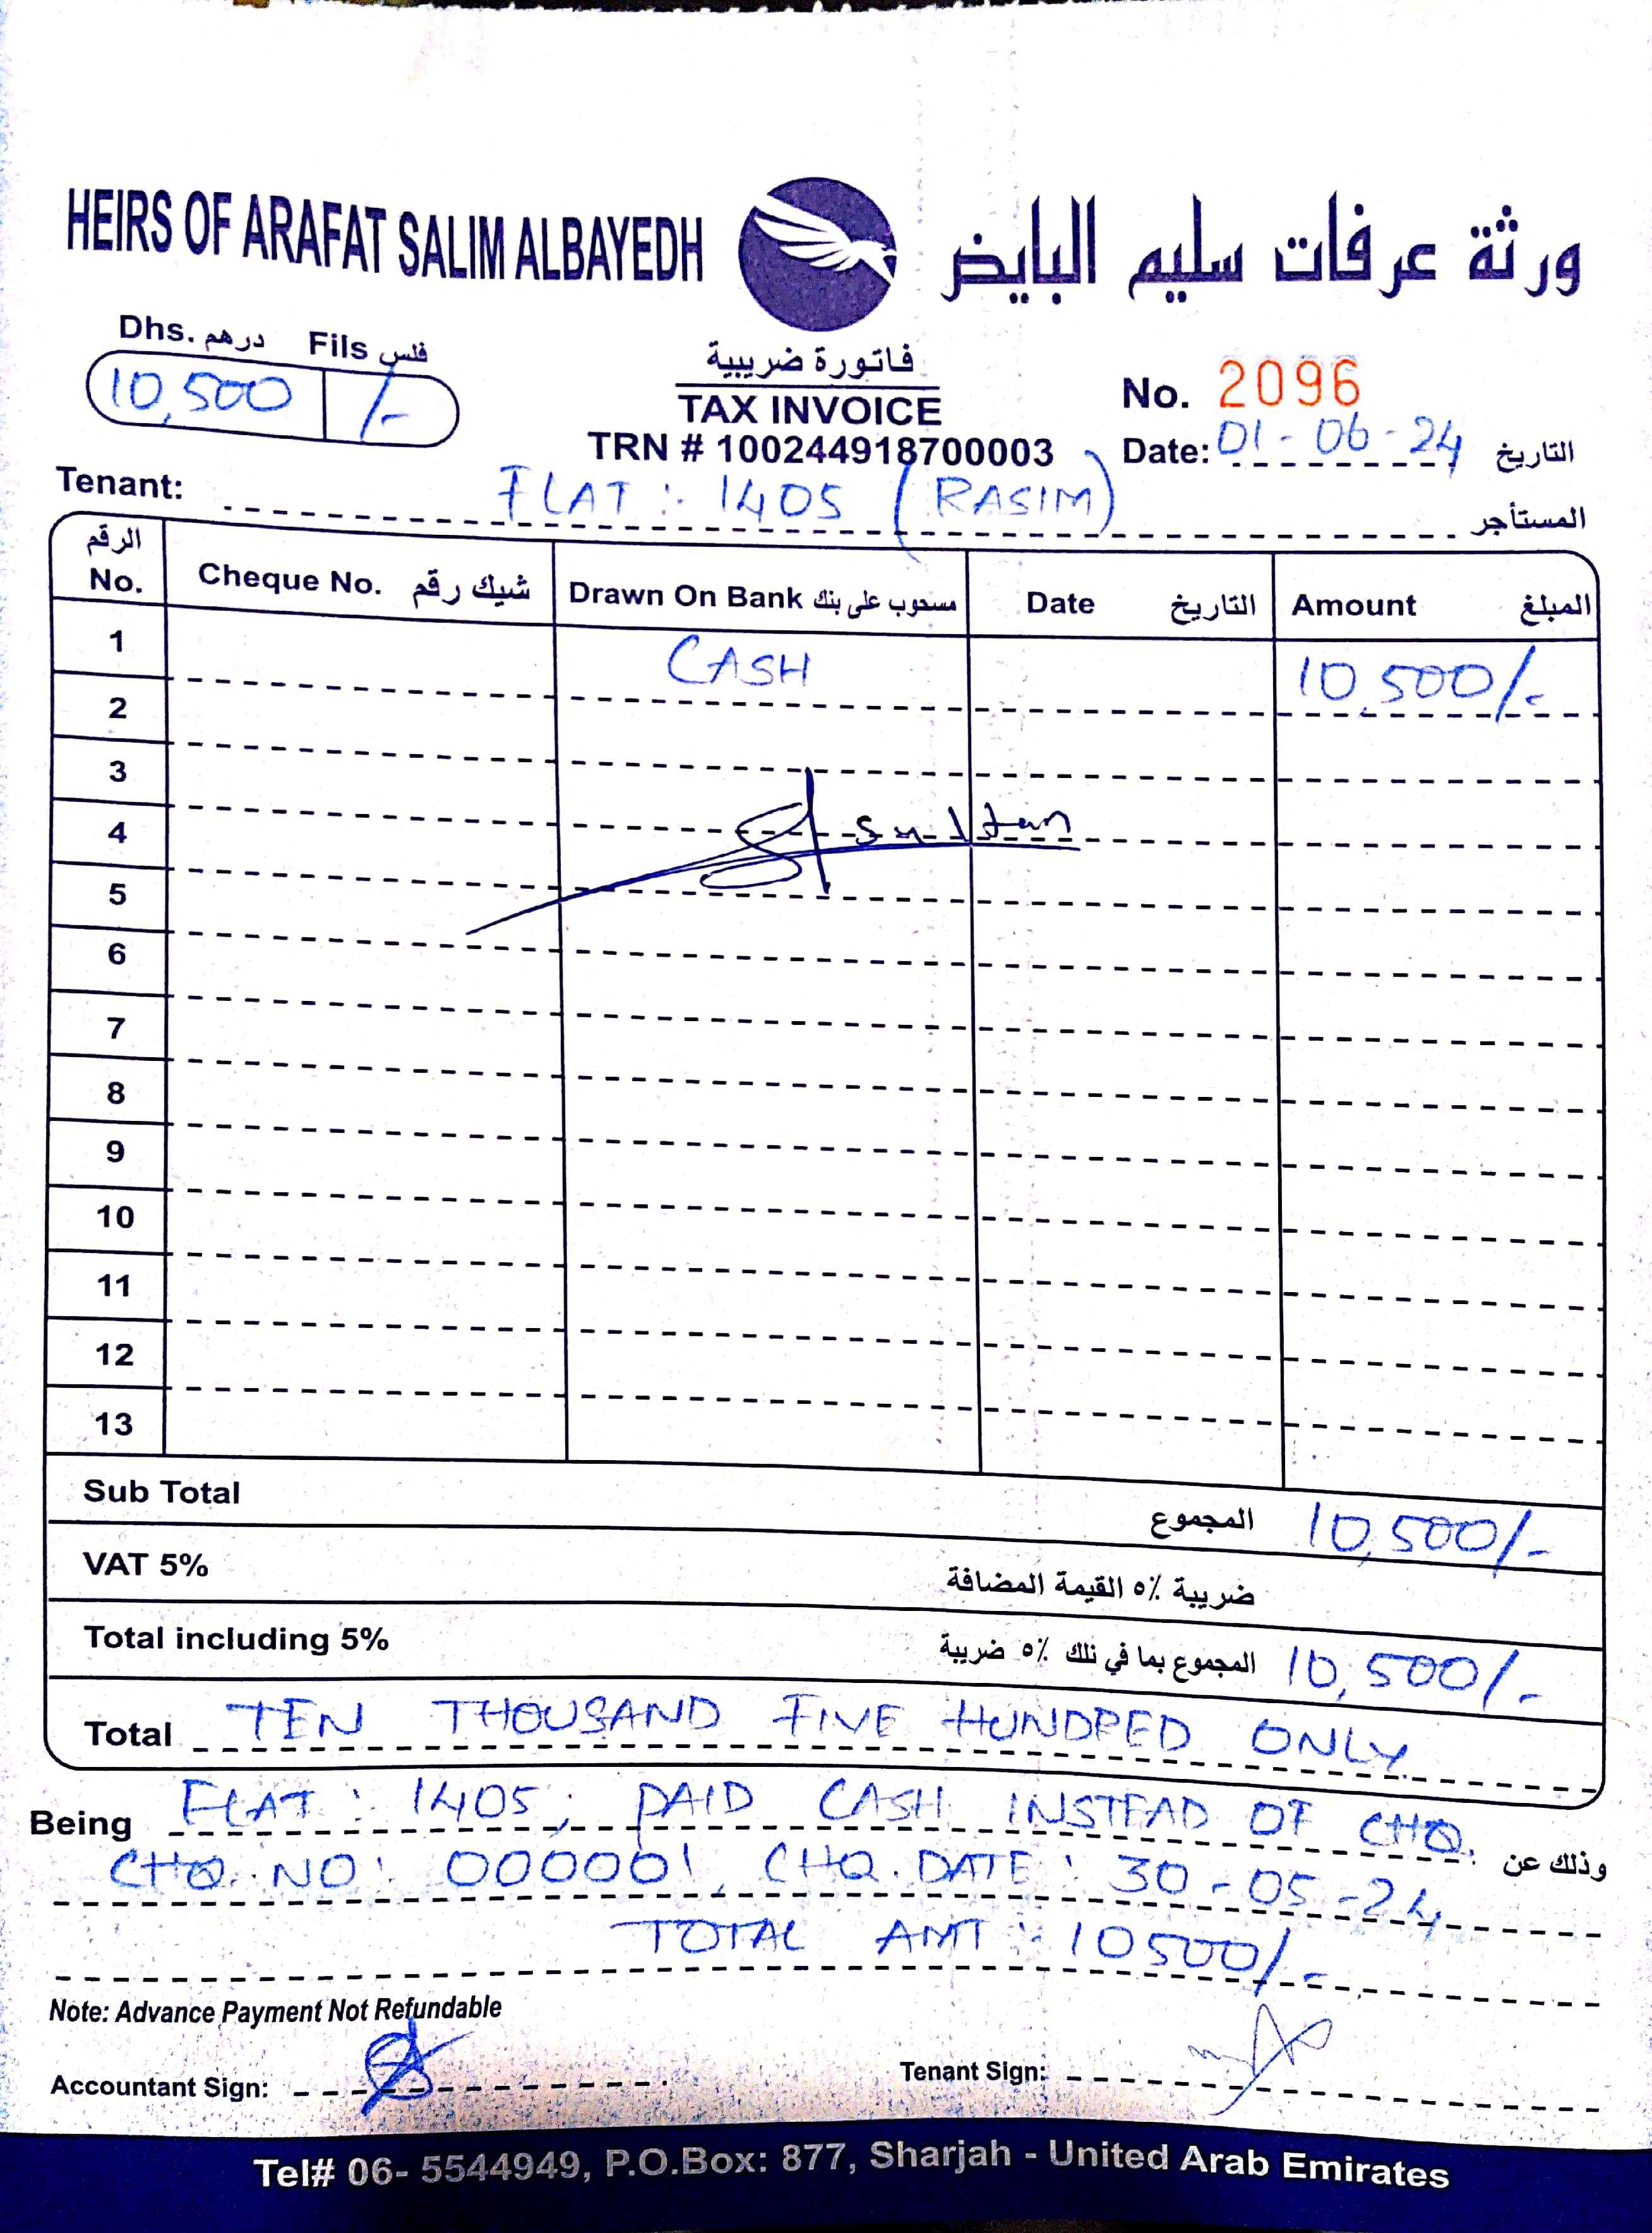 HEIRS OF ARAFAT SALIM ALBAYEDH
ورثة عرفات سليم البايض
Dhs. درهم Fils فلس
10,500 /-
فاتورة ضريبية
TAX INVOICE
TRN # 100244918700003
No. 2096
Date: 01-06-24 التاريخ
Tenant: FLAT :- 1405 (RASIM) المستأجر
الرقم No. Cheque No. شيك رقم Drawn On Bank مسحوب على بنك Date التاريخ Amount المبلغ
1 CASH 10,500/-
2
3
4 Sultan
5
6
7
8
9
10
11
12
13
Sub Total المجموع 10,500/-
VAT 5% ضريبة ٥٪ القيمة المضافة
Total including 5% المجموع بما في ذلك ٥٪ ضريبة 10,500/-
Total TEN THOUSAND FIVE HUNDRED ONLY
Being FLAT : 1405, PAID CASH INSTEAD OF CHQ. وذلك عن
CHQ. NO: 000001, CHQ. DATE : 30-05-24,
TOTAL AMT :- 10500/-
Note: Advance Payment Not Refundable
Accountant Sign:
Tenant Sign:
Tel# 06- 5544949, P.O.Box: 877, Sharjah - United Arab Emirates